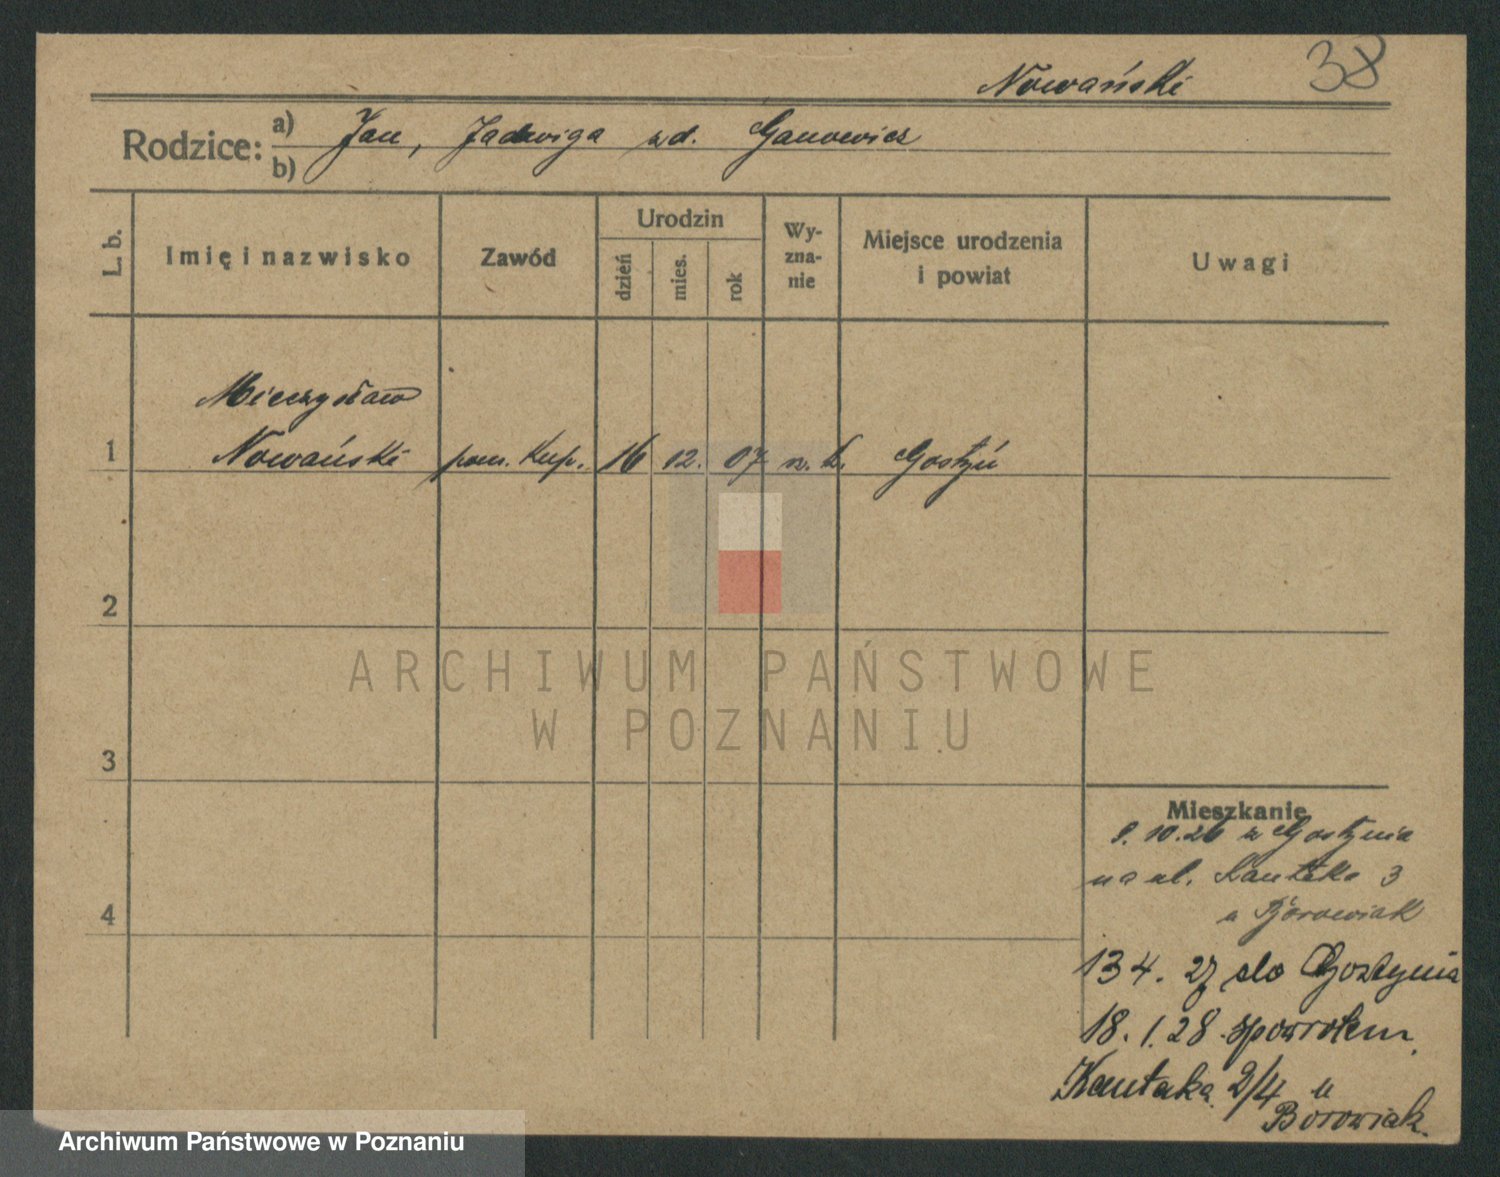 Nowański 38
Rodzice: a) b) Jan, Jadwiga zd. Ganowicz
L. b. Imię i nazwisko Zawód Urodzin dzień mies. rok Wy-zna-nie Miejsce urodzenia i powiat Uwagi
Mieczysław
1 Nowański pom. kup. 16 12. 07 rz. k. Gostyń
2
3
4
Mieszkanie
9.10.26 z Gostynia
na ul. Kantaka 3
u Borowiak
13 4. 27 do Gostynia
18.1.28 spowrotem
Kantaka 2/4 u
Borowiak.
ARCHIWUM PAŃSTWOWE
W POZNANIU
Archiwum Państwowe w Poznaniu